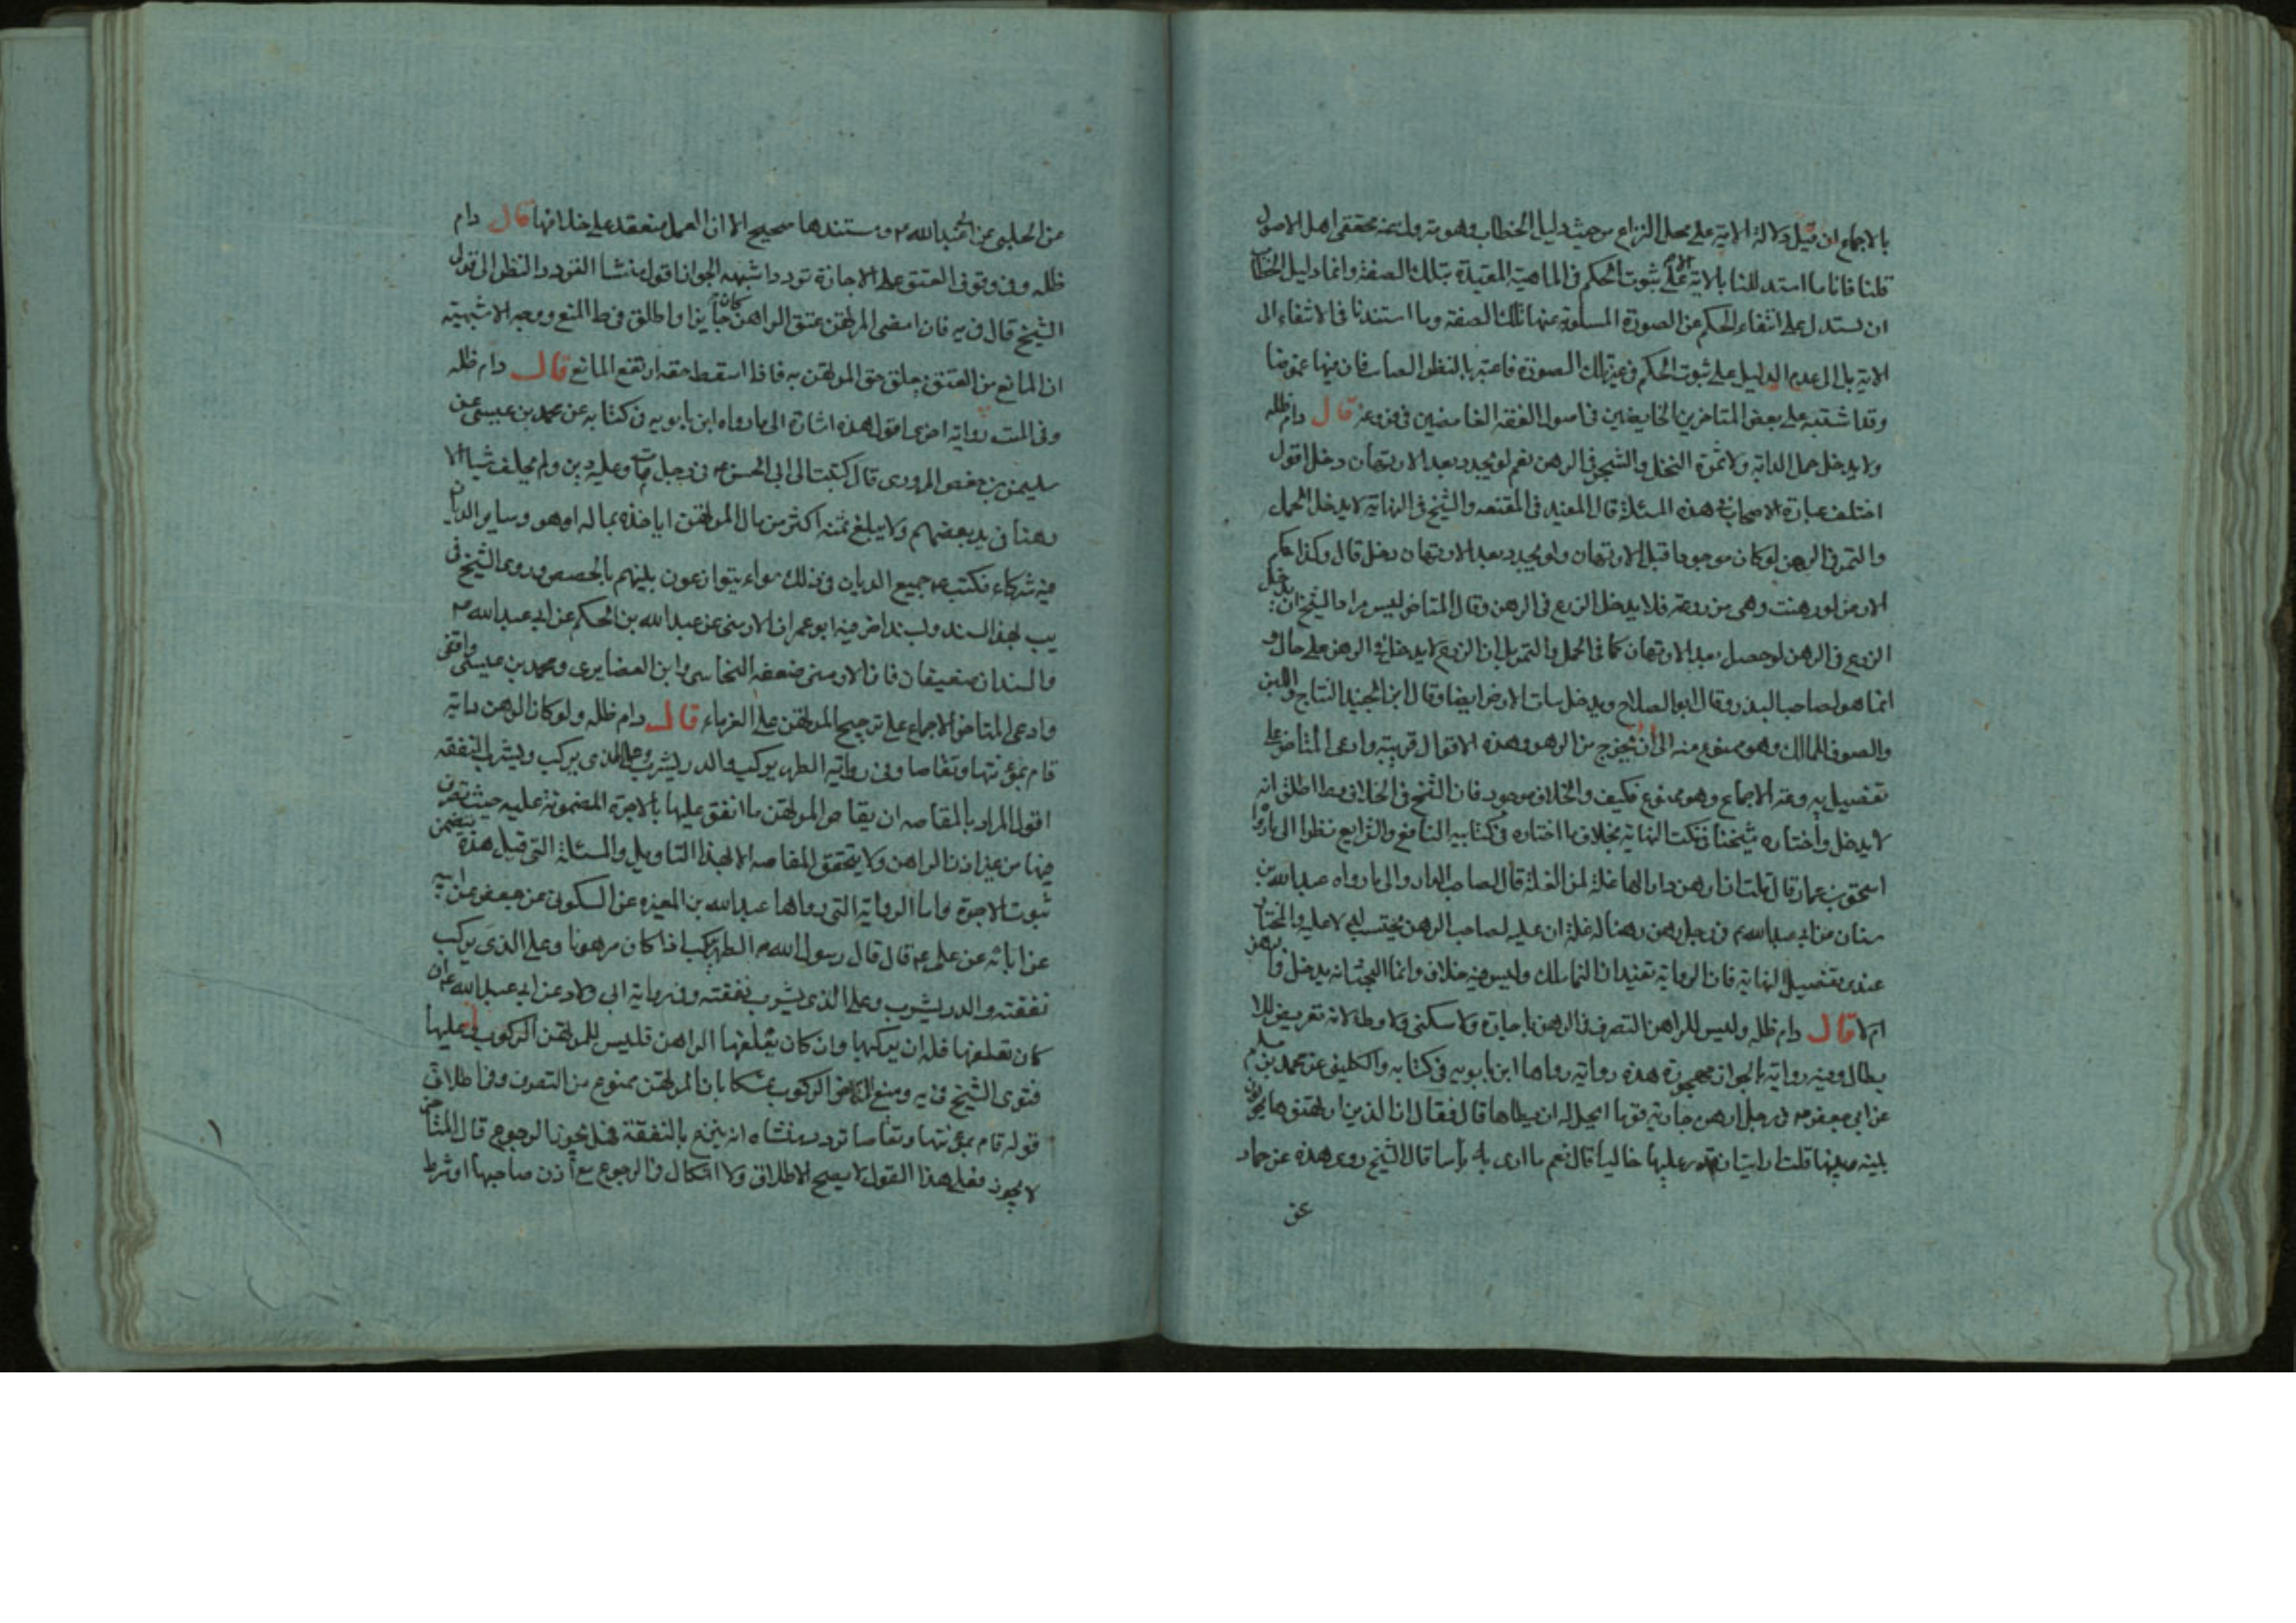 بالاجماع ان قيل دلالة الاية على محل النزاع من حيث دليل الخطاب وهو متروك عند محققى اهل الاصول
قلنا فانا ما استدللنا بالاية الا على ثبوت الحكم فى الماهية المقيدة بتلك الصفة وانما دليل الخطاب
ان يستدل على انتفاء الحكم عن الصورة المسلوبة عنها تلك الصفة وما استندنا فى الانتفاء الى
الاية بل الى عدم الدليل على ثبوت الحكم فى غير تلك الصورة فاعتبر بالنظر الصايب فان فيها غموضا
وقد اشتبه على بعض المتاخرين الخايضين فى اصول الفقه الغامضين فى فروعه قال دام ظله
ولا يدخل حمل الدابة ولا ثمرة النخل والشجر فى الرهن نعم لو تجدد بعد الارتهان دخل اقول
اختلف عبارة الاصحاب فى هذه المسئلة قال المفيد فى المقنعه والشيخ فى النهاية لا يدخل الحمل
والتمر فى الرهن لو كان موجودا قبل الارتهان ولو تجدد بعد الارتهان دخل قال وكذا حكم
الارض لو رهنت وهى مزروعة فلا يدخل الزرع فى الرهن وقال المتاخر ليس مراد الشيخ ان يدخل
الزرع فى الرهن لو حصل بعد الارتهان كما فى الحمل والتمر بل ان الزرع لا يدخل فى الرهن على حال و
انما هو لصاحب البذر وقال ابو الصلاح ويدخل نبات الارض ايضا وقال ابن الجنيد النتاج واللبن
والصوف للمالك وهو ممنوع منه الى ان يخرج من الرهن وهذه الاقوال قريبة وادعى المتاخر على
تفصيل يه وعه الاجماع وهو ممنوع فكيف والخلاف موجود فان الشيخ فى الخلاف وط اطلق انه
لا يدخل واختاره شيخنا فى نكت النهاية بخلاف ما اختاره فى كتابيه النافع والشرايع نظرا الى ما رواه
اسحق بن عمار قال قلت فان رهن دارا لها غلة لمن الغلة قال لصاحب الدار والى ما رواه عبد الله بن
سنان عن ابى عبد الله ع فى رجل رهن رهنا له غلة ان عليه لصاحب الرهن يحتسب له لا عليه والمختار
عندى تفصيل النهاية فان الرواية تفيد ان النما للمالك وليس فيه خلاف وانما البحث انه يدخل فى الرهن
ام لا قال دام ظله وليس للراهن التصرف فى الرهن باجارة ولا سكنى ولا وطء لانه تعريض للا
بطال وفيه رواية بالجواز مهجورة هذه رواية رواها ابن بابويه فى كتابه والكلينى عن محمد بن مسلم
عن ابى جعفر ع فى رجل رهن جارية قوما ايحل له ان يطاها قال فقال ان الذين ارتهنوها يحولون
بينه وبينها قلت ارايت ان قدر عليها خاليا قال نعم ما ارى به باسا قال الشيخ روى هذه عن حماد
عن
عن الحلبى عن ابى عبد الله ع ومستندها صحيح الا ان العمل منعقد على خلافها قال دام
ظله وفى وقوف العتق على الاجازة تردد اشبهه الجواز اقول منشا التردد النظر الى قول
الشيخ قال فى يه فان امضى المرتهن عتق الراهن كان جايزا واطلق فى ط المنع ووجه الاشبهية
ان المانع من العتق تعلق حق المرتهن به فاذا اسقط حقه ارتفع المانع قال دام ظله
وفى الميت رواية اخرى اقول هذه اشارة الى ما رواه ابن بابويه فى كتابه عن محمد بن عيسى عن
سليمن بن حفص المروزى قال كتبت الى ابى الحسن ع فى رجل مات وعليه دين ولم يخلف شيا الا
رهنا فى يد بعضهم ولا يبلغ ثمنه اكثر من مال المرتهن اياخذه بماله او هو وساير الديان
فيه شركاء فكتب ع جميع الديان فى ذلك سواء يتوازعون بينهم بالحصص وروى الشيخ فى
يب بهذا السند وبسند اخر فيه ابو عمران الارمنى عن عبد الله بن الحكم عن ابى عبد الله ع
والسندان ضعيفان فان الارمنى ضعفه النجاشى وابن الغضايرى ومحمد بن عيسى واقفى
وادعى المتاخر الاجماع على ترجيح المرتهن على الغرماء قال دام ظله ولو كان الرهن دابة
قام بمؤنتها وتقاصا وفى رواية الظهر يركب والدر يشرب وعلى الذى يركب ويشرب النفقة
اقول المراد بالمقاصه ان يقاص المرتهن ما انفق عليها بالاجرة المضمونة عليه حيث تصرف
فيها من غير اذن الراهن ولا يتحقق المقاصه الا بهذا التاويل والمسئلة التى قبل هذه يتضمن
ثبوت الاجرة واما الرواية التى رواها عبد الله بن المغيره عن السكونى عن جعفر عن ابيه
عن ابائه عن على ع قال قال رسول الله ص الظهر يركب اذا كان مرهونا وعلى الذى يركب
نفقته والدر يشرب وعلى الذى يشرب نفقته وفى رواية ابى ولاد عن ابى عبد الله ع ان
كان يعلفها فله ان يركبها وان كان يعلفها الراهن فليس للمرتهن الركوب عليها
فتوى الشيخ فى يه ومنع المتاخر الركوب تمسكا بان المرتهن ممنوع من التصرف وفى اطلاق
قوله قام بمؤنتها وتقاصا تردد منشاه انه يتبرع بالنفقة هل يجوز الرجوع قال المتاخر
لا يجوز فعلى هذا القول لا يصح الاطلاق ولا اشكال فى الرجوع مع اذن صاحبها او شرط